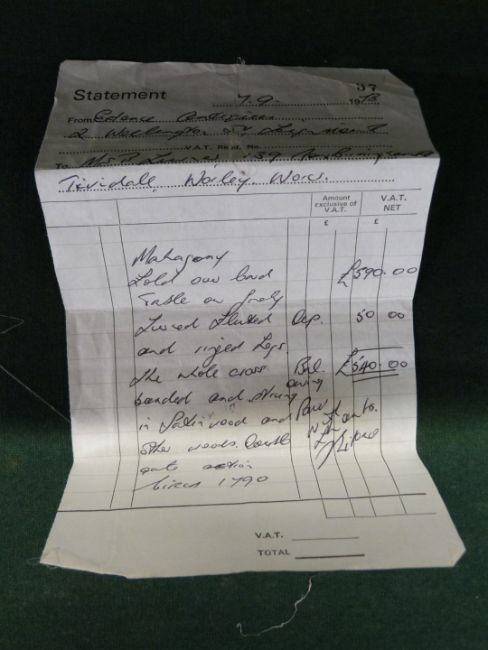 Statement
37
7.9. 1973
From Antiques
2 St,
V.A.T. Regd. No.
To Mrs
Tividale, Warley, Worcs.
Amount exclusive of V.A.T.
V.A.T. NET
£ £
Mahogany
fold over card £590.00
Table on finely
turned fluted Dep. 50 00
and ringed Legs.
The whole cross Bal. £540.00
banded and string owing
in Satinwood and
other woods. Double
gate action
Circa 1790
V.A.T.
TOTAL